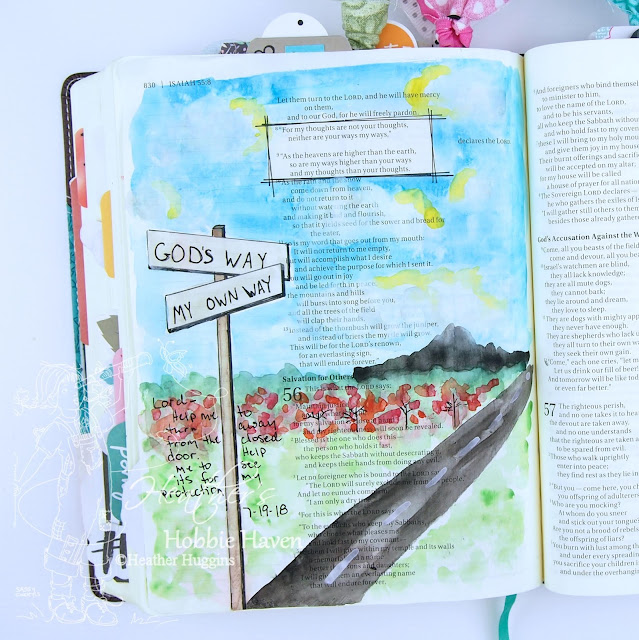 830 | ISAIAH 55:8
Let them turn to the LORD, and he will have mercy
on them,
and to our God, for he will freely pardon.
8 "For my thoughts are not your thoughts,
neither are your ways my ways,"
declares the LORD.
9 "As the heavens are higher than the earth,
so are my ways higher than your ways
and my thoughts than your thoughts.
As the rain and the snow
come down from heaven,
and do not return to it
without watering the earth
and making it bud and flourish,
so that it yields seed for the sower and bread for
the eater,
so is my word that goes out from my mouth:
It will not return to me empty,
but will accomplish what I desire
and achieve the purpose for which I sent it.
You will go out in joy
and be led forth in peace;
the mountains and hills
will burst into song before you,
and all the trees of the field
will clap their hands.
Instead of the thornbush will grow the juniper,
and instead of briers the myrtle will grow.
This will be for the LORD's renown,
for an everlasting sign,
that will endure forever."
GOD'S WAY
MY OWN WAY
Salvation for Others
56 This is what the LORD says:
and do what is right,
for my salvation is close at hand
soon be revealed.
2 Blessed is the one who does this—
the person who holds it fast,
who keeps the Sabbath without desecrating
and keeps their hands from doing any evil.
Let no foreigner who is bound to the LORD say,
"The LORD will surely exclude me from his people."
And let no eunuch complain,
"I am only a dry tree."
4 For this is what the LORD says:
"To the eunuchs who keep my Sabbaths,
who choose what pleases me
and hold fast to my covenant—
to them I will give within my temple and its walls
daughters;
I will give them an everlasting name
that will endure forever.
Lord
Help me to
turn away
from the closed
door. Help
me to see
its for my
protection
7-19-18
Heather's
Hobbie Haven
©Heather Huggins
And foreigners who bind themselves
to minister to him,
to love the name of the LORD,
and to be his servants,
all who keep the Sabbath without
and who hold fast to my covenant
these I will bring to my holy mountain
and give them joy in my house
Their burnt offerings and sacrifices
will be accepted on my altar;
for my house will be called
a house of prayer for all nations
The Sovereign LORD declares—
he who gathers the exiles of Israel
"I will gather still others to them
besides those already gathered
God's Accusation Against the
Come, all you beasts of the field,
come and devour, all you beasts
Israel's watchmen are blind,
they all lack knowledge;
they are all mute dogs,
they cannot bark;
they lie around and dream,
they love to sleep.
They are dogs with mighty appetites;
they never have enough.
They are shepherds who lack
they all turn to their own way,
they seek their own gain.
"Come," each one cries, "let me
Let us drink our fill of beer!
And tomorrow will be like today,
or even far better."
57 The righteous perish,
and no one takes it to heart
the devout are taken away,
and no one understands
that the righteous are taken away
to be spared from evil.
Those who walk uprightly
enter into peace;
they find rest as they lie
"But you—come here, you children
you offspring of adulterers
Who are you mocking?
At whom do you sneer
and stick out your tongue?
Are you not a brood of rebels,
the offspring of liars?
You burn with lust among the
and under every spreading
you sacrifice your children
and under the overhanging